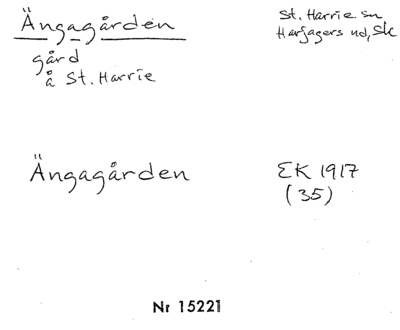 Ängagården
gård
å St. Harrie
St. Harrie sn
Harjagers hd, Sk
Ängagården
EK 1917
(35)
Nr 15221